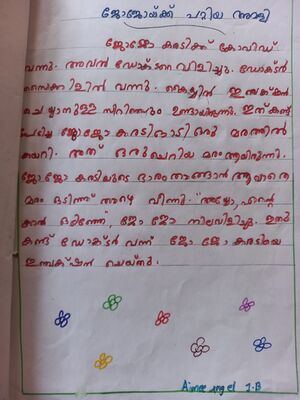 ജോജോയ്ക്ക് പറ്റിയ അമളി
ജോജോ കരടിക്ക് കോവിഡ്
വന്നു. അവൻ ഡോക്ടറെ വിളിച്ചു. ഡോക്ടർ
സൈക്കിളിൽ വന്നു. കൈയ്യിൽ ഇഞ്ചക്ഷൻ
ചെയ്യാനുള്ള സിറിഞ്ചും ഉണ്ടായിരുന്നു. ഇത് കണ്ട്
പേടിച്ച ജോജോ കരടി ഓടി ഒരു മരത്തിൽ
കയറി. അത് ഒരു ചെറിയ മരം ആയിരുന്നു.
ജോജോ കരടിയുടെ ഭാരം താങ്ങാൻ ആവാതെ
മരം ഒടിഞ്ഞ് താഴെ വീണു. "അയ്യോ, എന്റെ
കാൽ ഒടിഞ്ഞേ", ജോ ജോ നിലവിളിച്ചു. ഇതു
കണ്ട് ഡോക്ടർ വന്ന് ജോ ജോ കരടിയെ
ഇഞ്ചക്ഷൻ ചെയ്തു.
Aimee angel 1.B